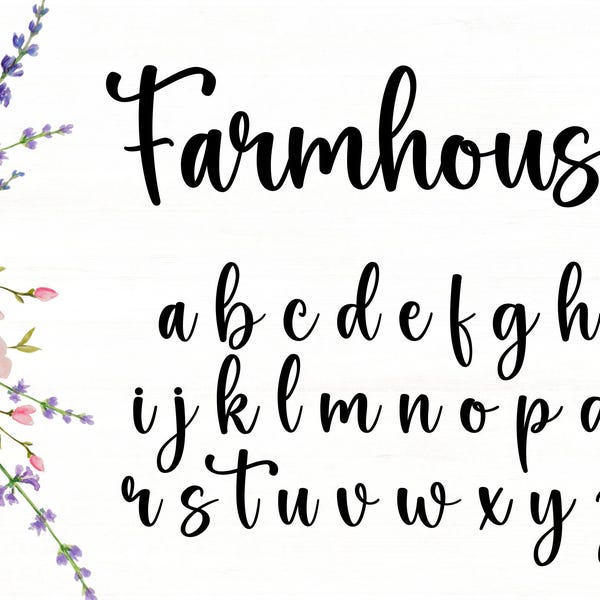 Farmhous
a b c d e f g h
i j k l m n o p
r s t u v w x y